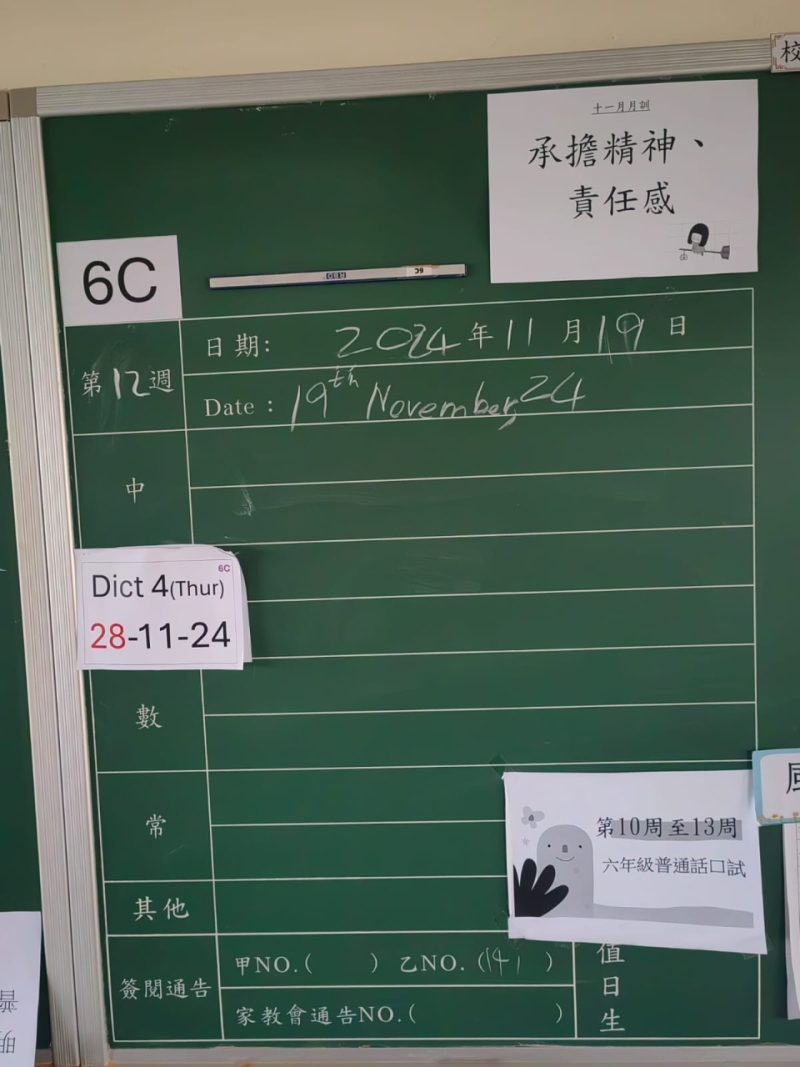 校
十一月月訓
承擔精神、
責任感
6C
RBD 6C
第12週
日期: 2024年11月19日
Date : 19th November, 24
中
6C
Dict 4(Thur)
28-11-24
數
常
第10周至13周
六年級普通話口試
其他
簽閱通告
甲NO.( ) 乙NO.(141 )
家教會通告NO.( )
值日生